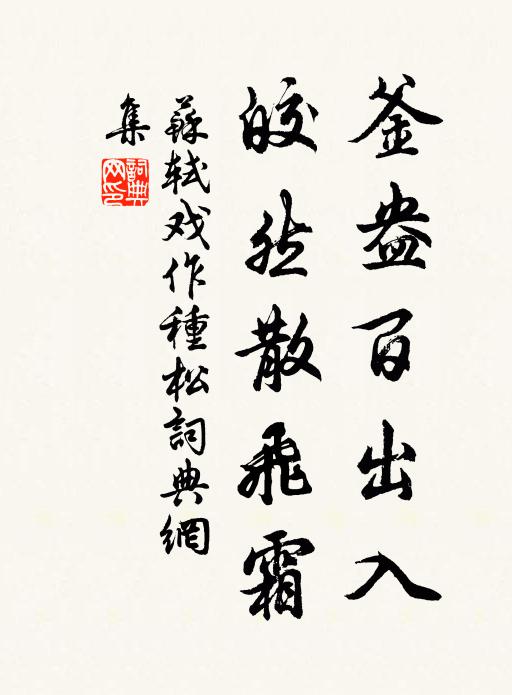 釜盎百出入
皎然散飛霜
蘇軾戏作種松詞典網
集
詞典網印